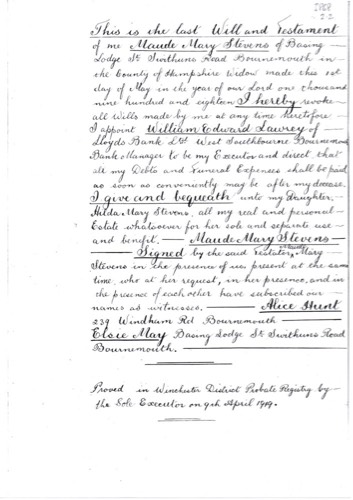 This is the last Will and Testament
of me Maude Mary Stevens of Basing
Lodge St Swithuns Road Bournemouth in
the County of Hampshire Widow made this 1st
day of May in the year of our Lord one thousand
nine hundred and eighteen I hereby revoke
all Wills made by me at any time heretofore
I appoint William Edward Lawrey of
Lloyds Bank Ltd West Southbourne Bournemouth
Bank Manager to be my Executor and direct that
all my Debts and Funeral Expenses shall be paid
as soon as conveniently may be after my decease.
I give and bequeath unto my Daughter,
Hilda Mary Stevens, all my real and personal
Estate whatsoever for her sole and separate use
and benefit. — Maude Mary Stevens —
— Signed by the said Testator, Maude Mary
Stevens in the presence of us present at the same
time, who at her request, in her presence, and in
the presence of each other have subscribed our
names as witnesses. — Alice Hunt
239 Windham Rd Bournemouth —
Elsie May Basing Lodge St Swithuns Road
Bournemouth.
Proved in Winchester District Probate Registry by
the Sole Executor on 9th April 1919.